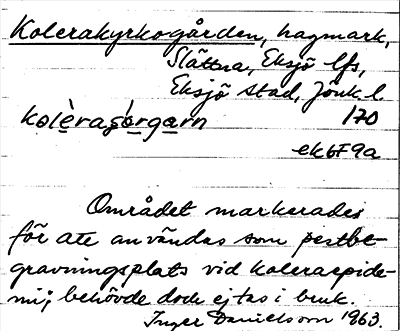 Kolerakyrkogården, hagmark,
Slättna, Eksjö lfs,
Eksjö stad, Jönk. l.
kolèraʂɔrgarn 170
ek6F9a
Området markerades
för att användas som pestbe-
gravningsplats vid koleraepide-
mi; behövde dock ej tas i bruk.
Inger Danielsson 1963.